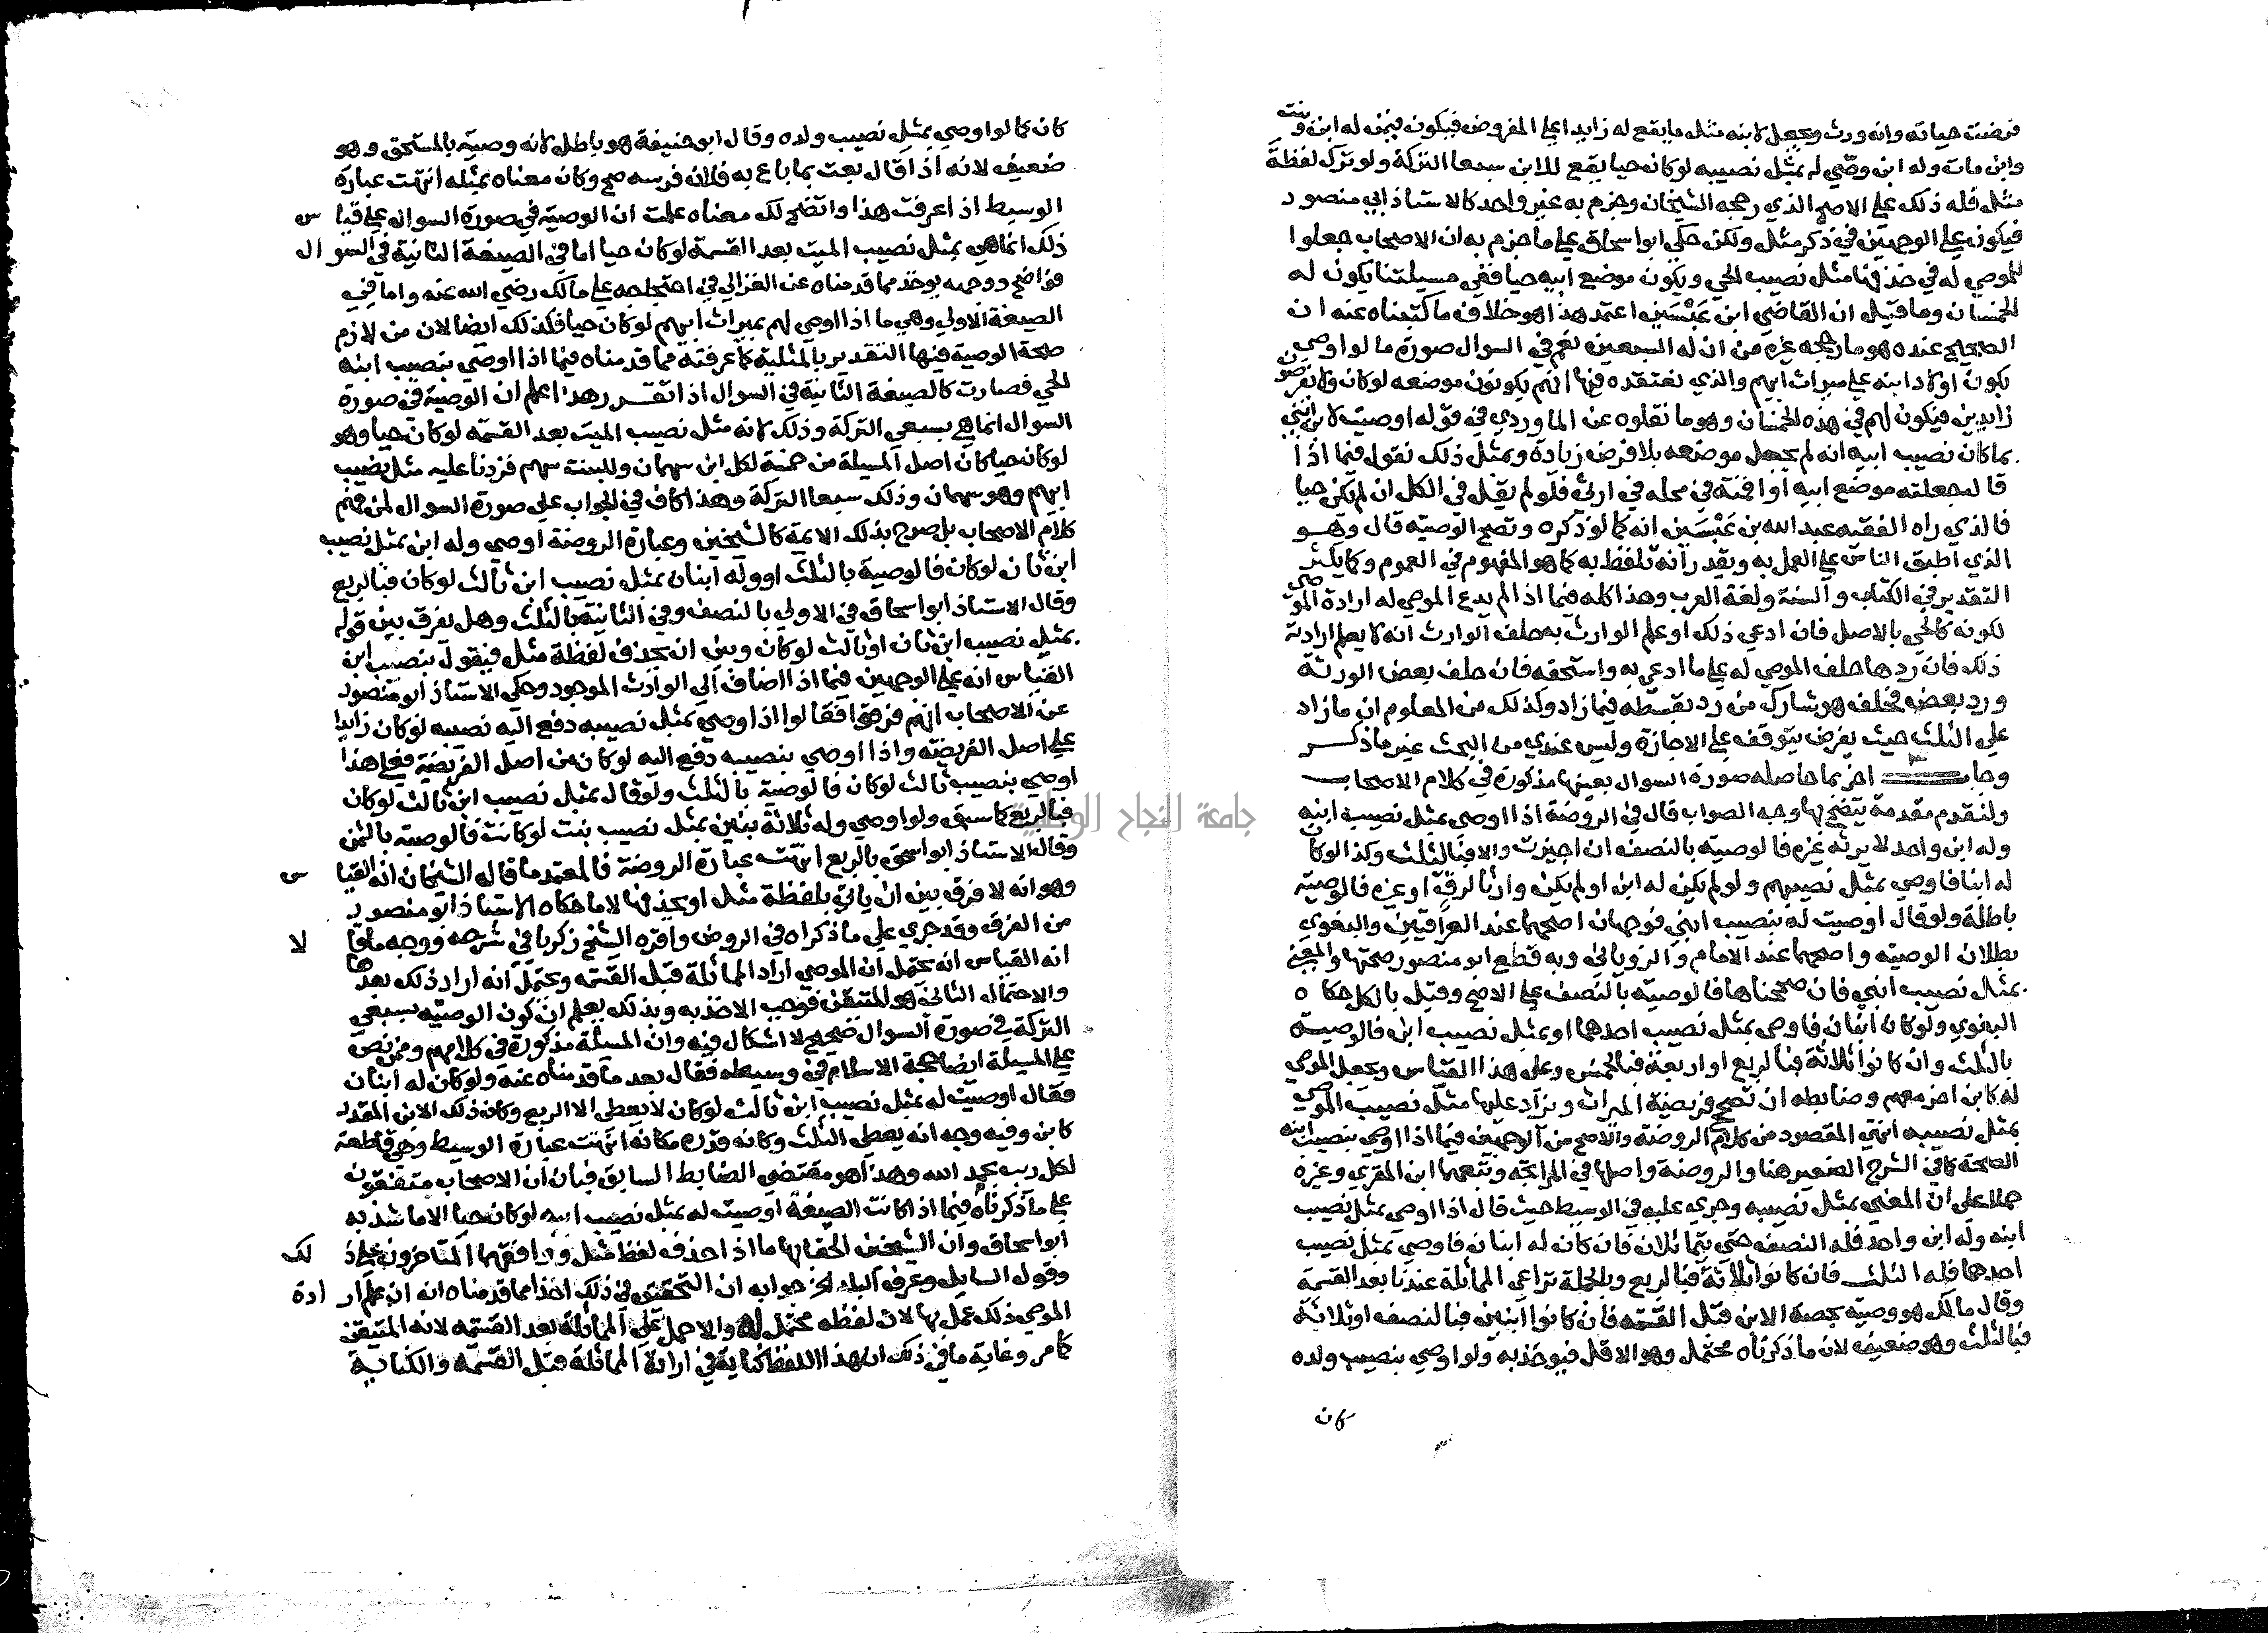 فرضت حياته وانه ورث ويجعل لابنه مثل ما يقع له زايدا علي المفروض فيكون فيمن له ابن وبنت
وابن مات وله ابن وصّي له بمثل نصيبه لو كان حيا يقع للابن سبعا التركة ولو ترك لفظة
مثل فله ذلك علي الاصح الذي رجحه الشيخان وجزم به غير واحد كالاستاذ ابي منصور
فيكون علي الوجهين في ذكر مثل ولكن حكي ابو اسحاق علي ما جزم به ان الاصحاب جعلوا
للموصي له في حذفها مثل نصيب الحي ويكون موضع ابيه حيا ففي مسيلتنا يكون له
الخمسان وما قيل ان القاضي ابن عَبْسَين اعتمد هذا هو خلاف ما كتبناه عنه ان
الصحيح عنده هو ما رجحه غيره من ان له السبعين نعم في السوال صورة ما لو اوصي
بكون اولاد ابنه علي ميراث ابيهم والذي نعتقده فيها انهم يكونون موضعه لو كان ولا نفرضهم
زايدين فيكون لهم في هذه الخمسان وهو ما نقلوه عن الماوردي في قوله اوصيت لابن ابني
بما كان نصيب ابيه انه لم يجعل موضعه بلا فرض زيادة ومثل ذلك نقول فيما اذا
قال جعلته موضع ابيه او اقمته في محله في ارثي فلو لم يقل في الكل ان لم يكن حيا
فالذي راه الفقيه عبد الله بن عَبْسَين انه كما لو ذكره وتصح الوصية قال وهو
الذي اطبق الناس علي العمل به ويقدر انه تلفظ به كما هو المفهوم في العموم وكما يكثر
التقدير في الكتاب والسنة ولغة العرب وهذا كله فيما اذا لم يدع الموصي له ارادة الموصي
لكونه كالحي بالاصل فان ادعي ذلك او علم الوارث به حلف الوارث انه لا يعلم ارادته
ذلك فان ردها حلف الموصي له علي ما ادعي به واستحقه فان حلف بعض الورثة
ورد بعض فحلف هو شارك من رد بقسطه فيما زاد وكذلك من المعلوم ان ما زاد
علي الثلث حيث يفرض يتوقف علي الاجازة وليس عندي من البحث غير ما ذكر
وجاب اخر بما حاصله صورة السوال بعينها مذكورة في كلام الاصحاب
ولنقدم مقدمة يتضح بها وجه الصواب قال في الروضة اذا اوصي بمثل نصيب ابنه
وله ابن واحد لا يرثه غيره فالوصية بالنصف ان اجيزت والا فبالثلث وكذا لو كان
له ابنا فاوصي بمثل نصيبهم ولو لم يكن له ابن او لم يكن وارثا لرق او غيره فالوصية
باطلة ولو قال اوصيت له بنصيب ابني فوجهان اصحهما عند العراقيين والبغوي
بطلان الوصية واصحهما عند الامام والروياني وبه قطع ابو منصور صحتها والمعني
بمثل نصيب ابني فان صححناها فالوصية بالنصف علي الاصح وقيل بالكل حكاه
البغوي ولو كان ابنان فاوصي بمثل نصيب احدهما او بمثل نصيب ابن فالوصية
بالثلث وان كانوا ثلاثة فبالربع او اربعة فبالخمس وعلي هذا القياس ويجعل الموصي
له كابن اخر معهم وضابطه ان تصح فريضة الميراث ويزاد عليها مثل نصيب الموصي
بمثل نصيبه انتهي المقصود من كلام الروضة والاصح من الوجهين فيما اذا اوصي بنصيب ابنه
الصحة كما في الشرح الصغير هنا والروضة واصلها في المرابحة وتبعهما ابن المقري وغيره
حملا علي ان المعني بمثل نصيبه وجري عليه في الوسيط حيث قال اذا اوصي بمثل نصيب
ابنه وله ابن واحد فله النصف حتي يتماثلان فان كان له ابنان فاوصي بمثل نصيب
احدهما فله الثلث فان كانوا ثلاثة فبالربع وبالجملة تراعي المماثلة عندنا بعد القسمة
وقال مالك هو وصية بحصة الابن قبل القسمة فان كانوا ابنين فبالنصف او ثلاثة
فبالثلث وهو ضعيف لان ما ذكرناه محتمل وهو الاقل فيوخذ به ولو اوصي بنصيب ولده
كان
كان كما لو اوصي بمثل نصيب ولده وقال ابو حنيفة هو باطل لانه وصية بالمستحق وهو
ضعيف لانه اذا قال بعت بما باع به فلان فرسه صح وكان معناه بمثله انتهت عبارة
الوسيط اذا عرفت هذا واتضح لك معناه علمت ان الوصية في صورة السوال علي قياس
ذلك انما هي بمثل نصيب الميت بعد القسمة لو كان حيا اما في الصيغة الثانية في السوال
فواضح ووجهه يوخذ مما قدمناه عن الغزالي في احتجاجه علي مالك رضي الله عنه واما في
الصيغة الاولي وهي ما اذا اوصي لهم بميراث ابيهم لو كان حيا فكذلك ايضا لان من لازم
صحة الوصية فيها التقدير بالمثلية كما عرفته مما قدمناه فيما اذا اوصي بنصيب ابنه
الحي فصارت كالصيغة الثانية في السوال اذا تقرر هذا اعلم ان الوصية في صورة
السوال انما هي بسبعي التركة وذلك لانه مثل نصيب الميت بعد القسمة لو كان حيا وهو
لو كان حيا كان اصل المسيلة من خمسة لكل ابن سهمان وللبنت سهم فزدنا عليه مثل نصيب
ابيهم وهو سهمان وذلك سبعا التركة وهذا كاف في الجواب علي صورة السوال لمن فهم
كلام الاصحاب بل صرح بذلك الايمة كالشيخين وعبارة الروضة اوصي وله ابن بمثل نصيب
ابن ثان لو كان فالوصية بالثلث او وله ابنان بمثل نصيب ابن ثالث لو كان فبالربع
وقال الاستاذ ابو اسحاق في الاولي بالنصف وفي الثانية بالثلث وهل يفرق بين قوله
بمثل نصيب ابن ثان او ثالث لو كان وبين ان يحذف لفظة مثل فيقول بنصيب ابن
القياس انه علي الوجهين فيما اذا اضاف الي الوارث الموجود وحكي الاستاذ ابو منصور
عن الاصحاب انهم فرقوا فقالوا اذا اوصي بمثل نصيبه دفع اليه نصيبه لو كان زايدا
علي اصل الفريضة واذا اوصي بنصيبه دفع اليه لو كان من اصل الفريضة فعلي هذا
اوصي بنصيب ثالث لو كان فالوصية بالثلث ولو قال بمثل نصيب ابن ثالث لو كان
فبالربع كما سبق ولو اوصي وله ثلاثة بنين بمثل نصيب بنت لو كانت فالوصية بالثمن
وقال الاستاذ ابو اسحق بالربع انتهت عبارة الروضة فالمعتمد ما قاله الشيخان انه القياس
وهو انه لا فرق بين ان ياتي بلفظة مثل او يحذفها لا ما حكاه الاستاذ ابو منصور
من الفرق وقد جري علي ما ذكراه في الروض واقره الشيخ زكريا في شرحه ووجه ما قالا
انه القياس انه يحتمل ان الموصي اراد المماثلة قبل القسمة ويحتمل انه اراد ذلك بعدها
والاحتمال الثاني هو المتيقن فوجب الاخذ به وبذلك يعلم ان كون الوصية بسبعي
التركة في صورة السوال صحيح لا اشكال فيه وان المسيلة مذكورة في كلامهم وممن نص
علي المسيلة ايضا حجة الاسلام في وسيطه فقال بعد ما قدمناه عنه ولو كان له ابنان
فقال اوصيت له بمثل نصيب ابن ثالث لو كان لا يعطي الا الربع وكان ذلك الابن المقدر
كاين وفيه وجه انه يعطي الثلث وكانه قدره مكانه انتهت عبارة الوسيط وهي قاطعة
لكل ريب بحمد الله وهذا هو مقتضي الضابط السابق فبان ان الاصحاب متفقون
علي ما ذكرناه فيما اذا كانت الصيغة اوصيت له بمثل نصيب ابيه لو كان حيا الا ما شذ به
ابو اسحاق وان الشيخين الحقا بها ما اذا حذف لفظ مثل ووافقهما المتاخرون علي ذلك
وقول السايل وعرف البلد الخ جوابه ان التحقيق في ذلك اخذا مما قدمناه انه ان علم ارادة
الموصي ذلك عمل بها لان لفظه محتمل له والا حمل علي المماثلة بعد القسمة لانه المتيقن
كما مر وغاية ما في ذلك ان هذا اللفظ كناية في ارادة المماثلة قبل القسمة والكناية
جامعة النجاح الوطنية